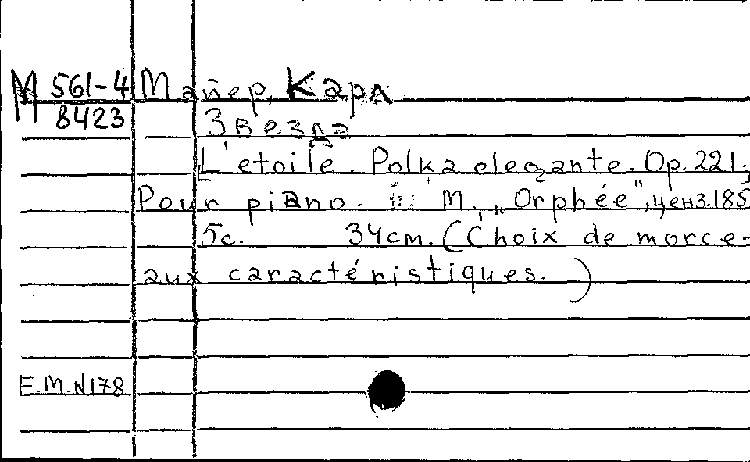 М 561-4 Майер, Карл
8423 Звезда
L'etoile. Polka elegante. Op. 221,
Pour piano. М., "Orphée", ценз. 185
5с. 34см. (Choix de morce-
aux caractéristiques.)
Е.М. N178